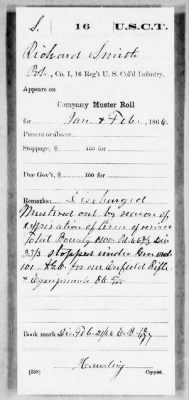 S. 16 U.S.C.T.
Richard Smith
Pvt., Co. I, 16 Reg't U. S. Col'd Infantry.
Appears on
Company Muster Roll
for Jan & Feb, 1866.
Present or absent
Stoppage, $ 100 for
Due Gov't, $ 100 for
Remarks: Discharged
Mustered out by reason of
expiration of term of service
Total Bounty
stopped under
for one Enfield Rifle
& Equipments
Book mark:
(358) Copyist.